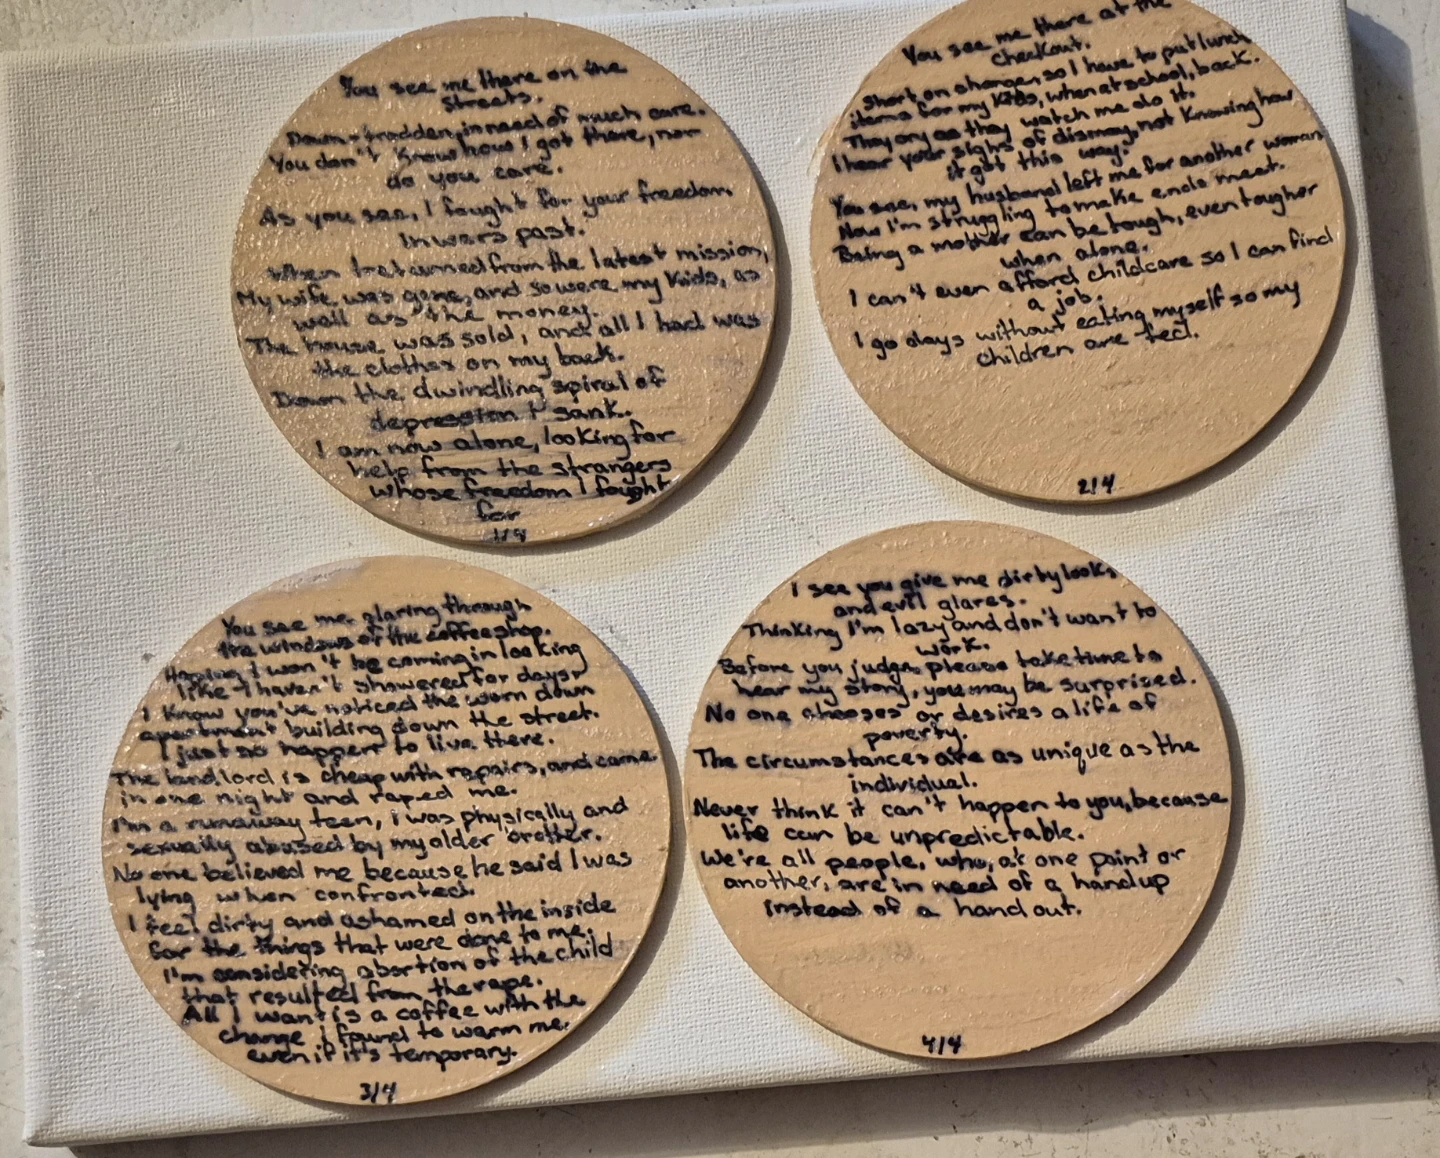 You see me there on the
streets.
Down-trodden, in need of much care.
You don't know how I got there, nor
do you care.
As you see, I fought for your freedom
in wars past.
When I returned from the latest mission,
My wife was gone, and so were my kids, as
well as the money.
The house was sold, and all I had was
the clothes on my back.
Down the dwindling spiral of
depression I sank.
I am now alone, looking for
help from the strangers
whose freedom I fought
for
1/4
You see me there at the
checkout.
Short on change, so I have to put lunch
items for my kids, when at school, back.
They cry as they watch me do it.
I hear your sighs of dismay, not knowing how
it got this way.
You see, my husband left me for another woman
Now I'm struggling to make ends meet.
Being a mother can be tough, even tougher
when alone.
I can't even afford childcare so I can find
a job.
I go days without eating myself so my
children are fed.
2/4
You see me glaring through
the windows of the coffee shop.
Hoping I won't be coming in looking
like I haven't showered for days.
I know you've noticed the worn down
apartment building down the street.
I just so happen to live there.
The landlord is cheap with repairs, and came
in one night and raped me.
I'm a runaway teen, i was physically and
sexually abused by my older brother.
No one believed me because he said I was
lying when confronted.
I feel dirty and ashamed on the inside
for the things that were done to me.
I'm considering abortion of the child
that resulted from the rape.
All I want is a coffee with the
change i found to warm me,
even if it's temporary.
3/4
I see you give me dirty looks
and evil glares.
Thinking I'm lazy and don't want to
work.
Before you judge, please take time to
hear my story, you may be surprised.
No one chooses or desires a life of
poverty.
The circumstances are as unique as the
individual.
Never think it can't happen to you, because
life can be unpredictable.
We're all people, who, at one point or
another, are in need of a hand up
instead of a hand out.
4/4